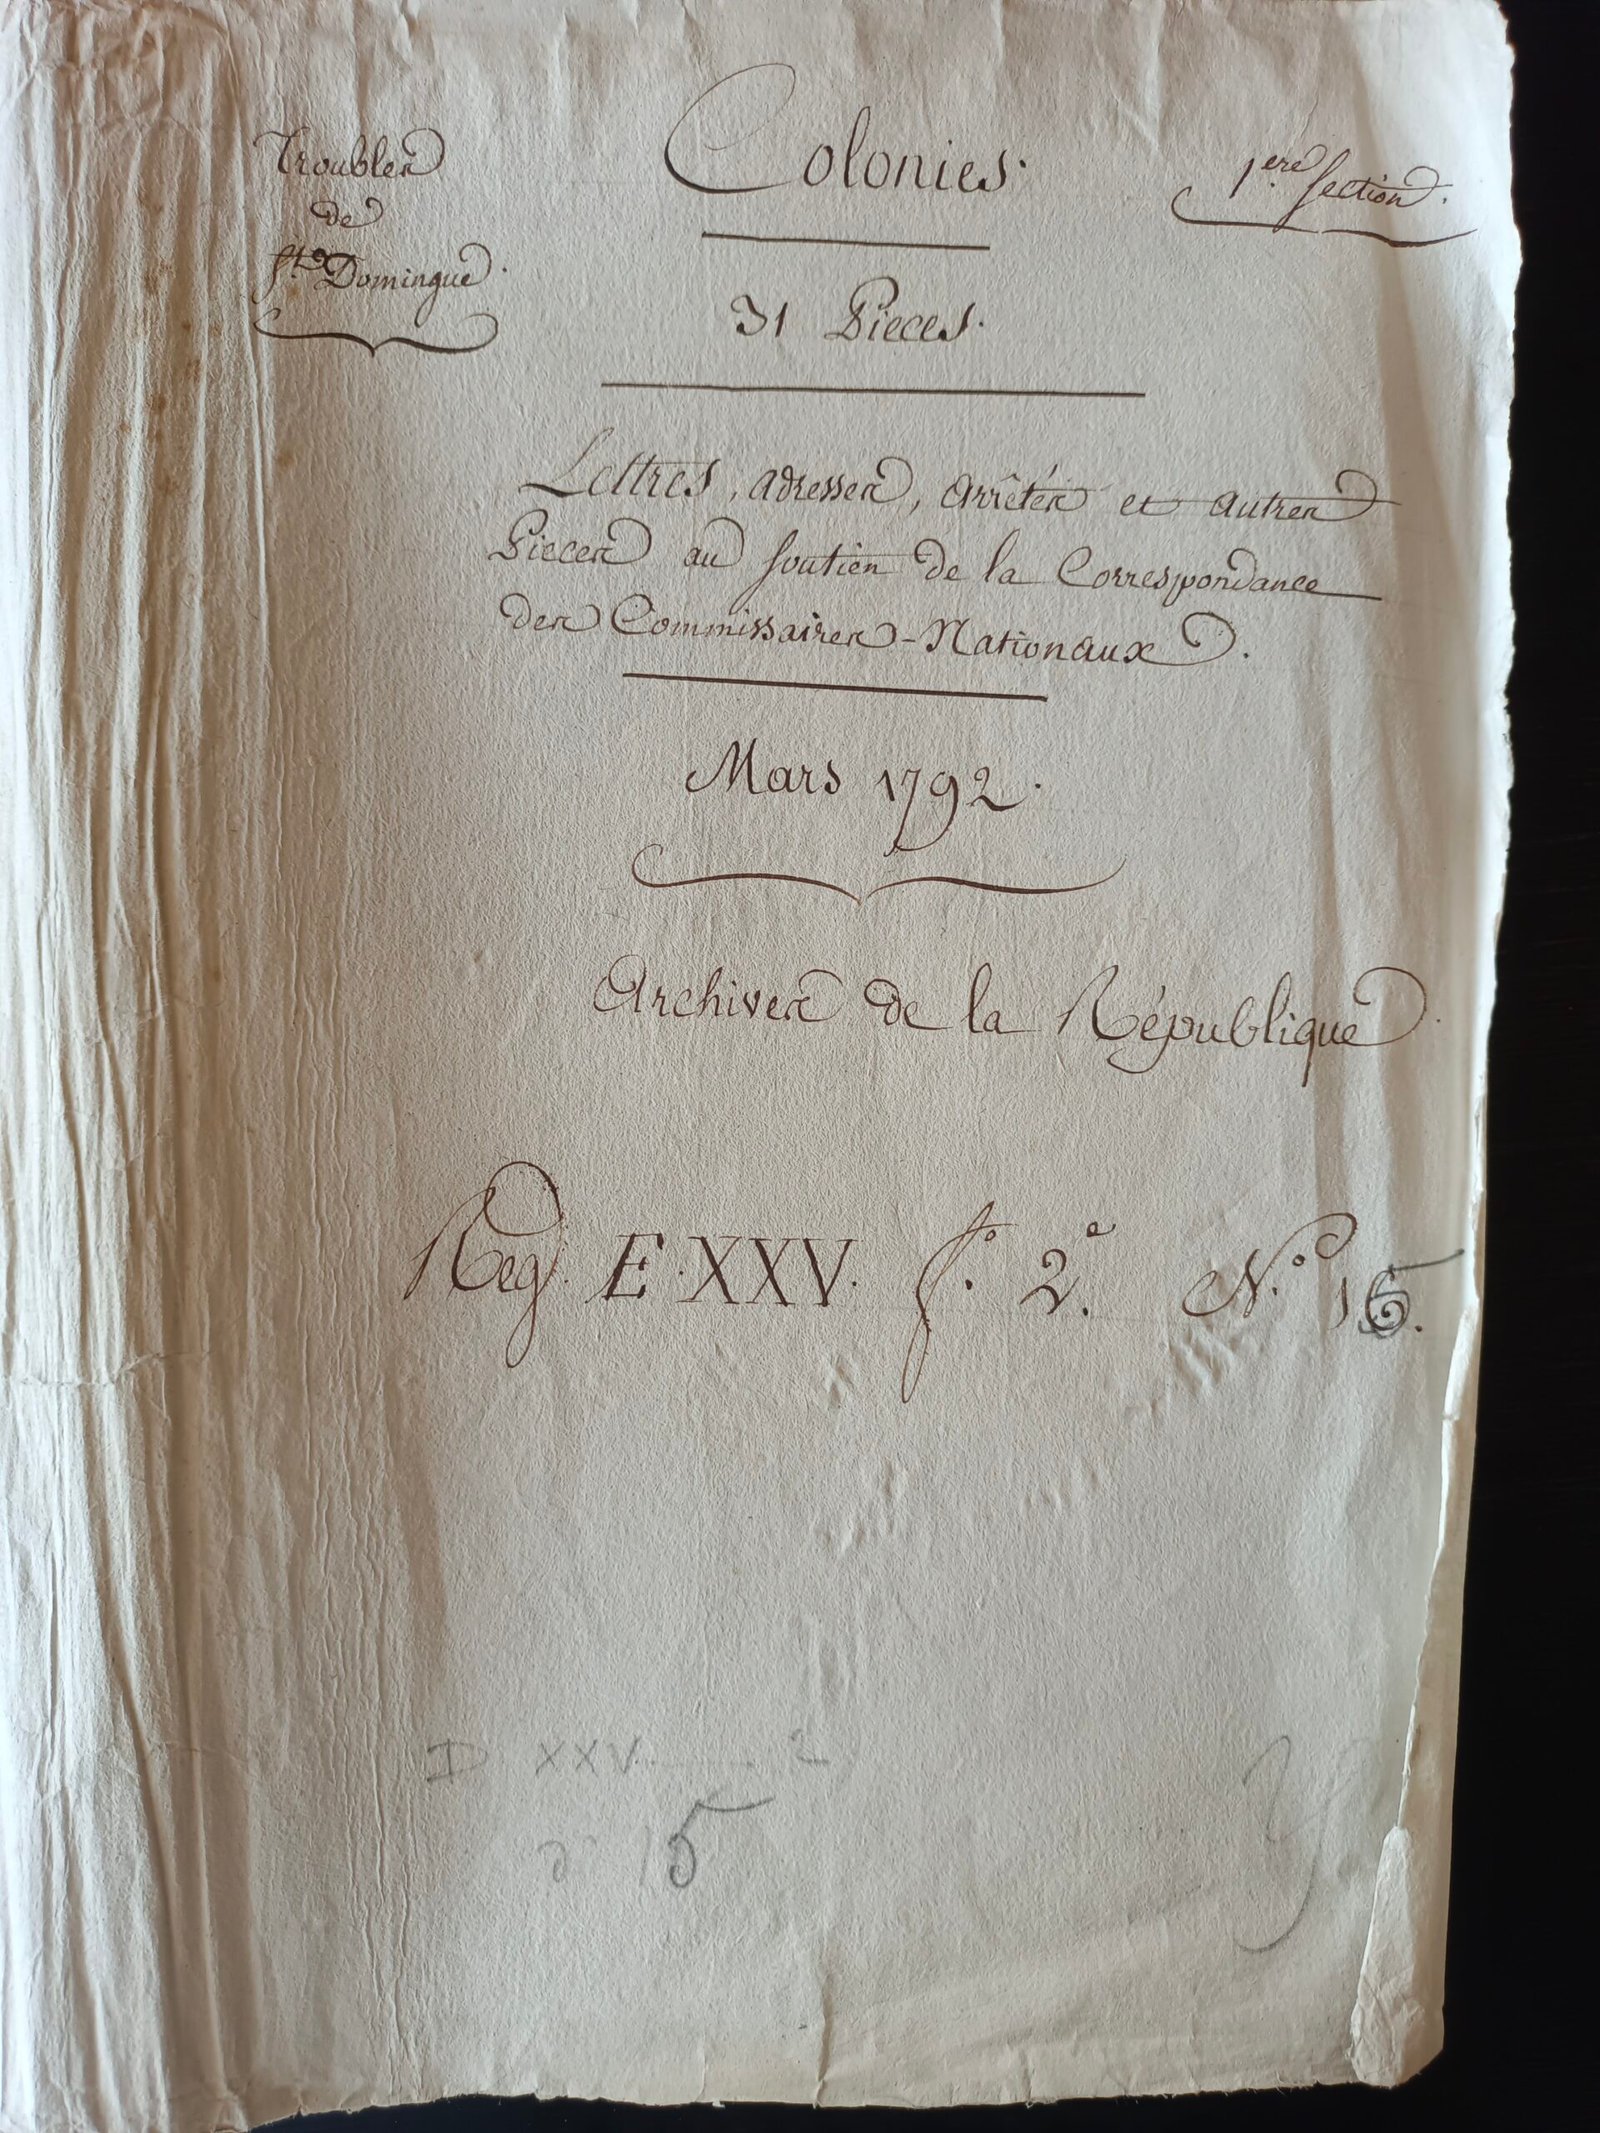 Troubles
de
St. Domingue.
Colonies.
1.ere Section.
31 Pieces.
Lettres, adresses, arrêtés et autres
Pieces au soutien de la Correspondance
des Commissaires-Nationaux.
Mars 1792.
Archives de la République.
Reg. E.XXV. f.o 2.e N.o 15.
D XXV 2
d 15